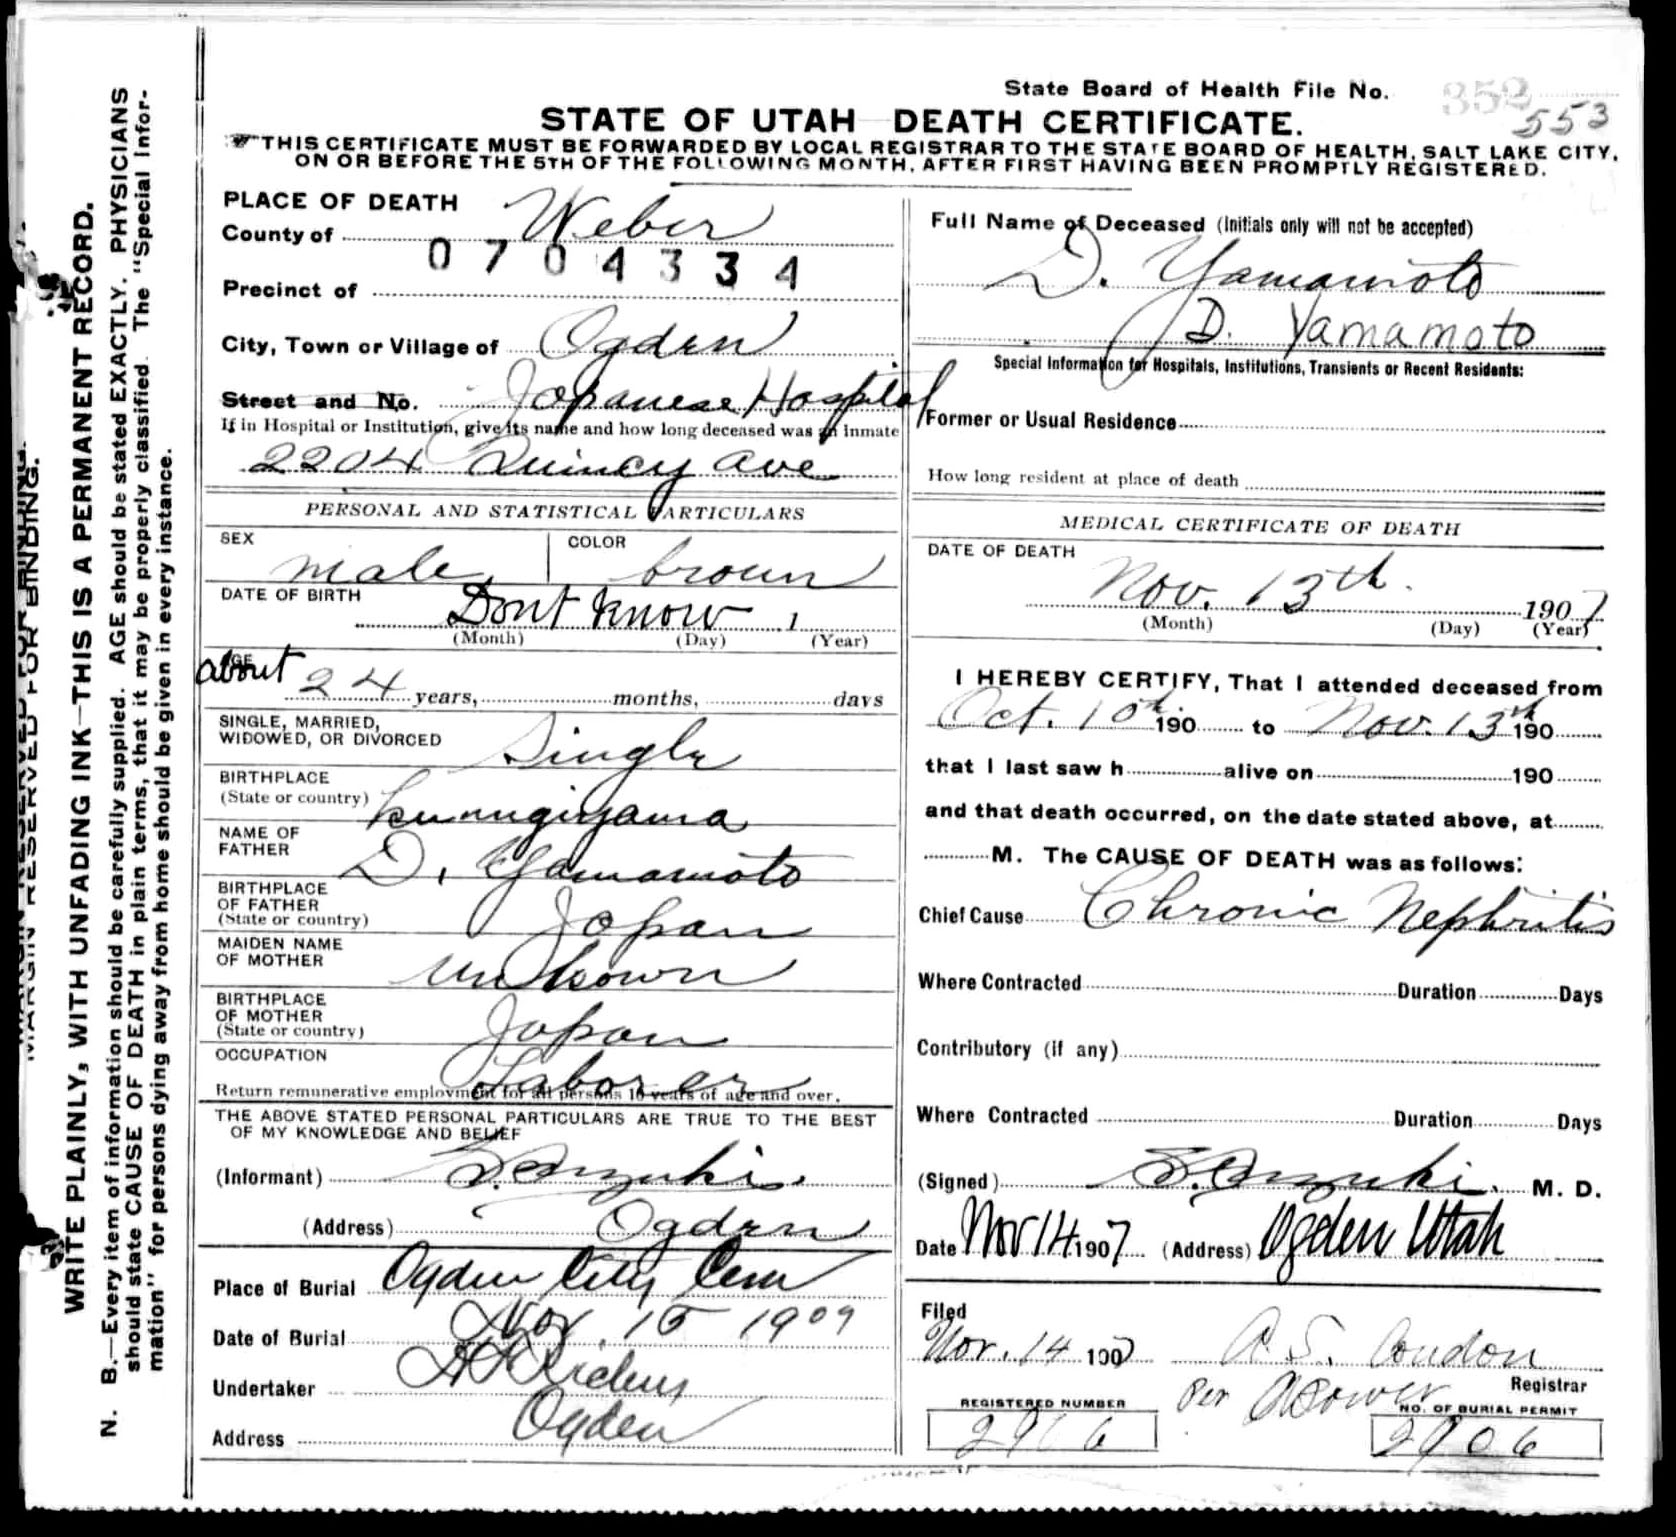 State Board of Health File No. 352 553
STATE OF UTAH DEATH CERTIFICATE.
THIS CERTIFICATE MUST BE FORWARDED BY LOCAL REGISTRAR TO THE STATE BOARD OF HEALTH, SALT LAKE CITY,
ON OR BEFORE THE 5TH OF THE FOLLOWING MONTH, AFTER FIRST HAVING BEEN PROMPTLY REGISTERED.
MARGIN RESERVED FOR BINDING.
WRITE PLAINLY, WITH UNFADING INK—THIS IS A PERMANENT RECORD.
N. B.—Every item of information should be carefully supplied. AGE should be stated EXACTLY. PHYSICIANS
should state CAUSE OF DEATH in plain terms, that it may be properly classified. The "Special Infor-
mation" for persons dying away from home should be given in every instance.
PLACE OF DEATH
County of Weber
0704334
Precinct of
City, Town or Village of Ogden
Street and No. Japanese Hospital
If in Hospital or Institution, give its name and how long deceased was an inmate
2204 Quincy Ave
PERSONAL AND STATISTICAL PARTICULARS
SEX male COLOR brown
DATE OF BIRTH Dont Know 1
(Month) (Day) (Year)
AGE about 24 years, months, days
SINGLE, MARRIED,
WIDOWED, OR DIVORCED Single
BIRTHPLACE
(State or country) Kunugiyama
NAME OF
FATHER D. Yamamoto
BIRTHPLACE
OF FATHER
(State or country) Japan
MAIDEN NAME
OF MOTHER Unknown
BIRTHPLACE
OF MOTHER
(State or country) Japan
OCCUPATION Laborer
Return remunerative employment for all persons 10 years of age and over.
THE ABOVE STATED PERSONAL PARTICULARS ARE TRUE TO THE BEST
OF MY KNOWLEDGE AND BELIEF
(Informant) S. Suzuki
(Address) Ogden
Place of Burial Ogden City Cem
Date of Burial Nov. 15 1909
Undertaker
Address Ogden
Full Name of Deceased (Initials only will not be accepted)
D. Yamamoto
D. Yamamoto
Special Information for Hospitals, Institutions, Transients or Recent Residents:
Former or Usual Residence
How long resident at place of death
MEDICAL CERTIFICATE OF DEATH
DATE OF DEATH
Nov. 13th. 1907
(Month) (Day) (Year)
I HEREBY CERTIFY, That I attended deceased from
Oct. 10th 190 to Nov. 13th 190
that I last saw h alive on 190
and that death occurred, on the date stated above, at
M. The CAUSE OF DEATH was as follows:
Chief Cause Chronic Nephritis
Where Contracted Duration Days
Contributory (if any)
Where Contracted Duration Days
(Signed) S. Suzuki. M. D.
Date Nov 14 1907 (Address) Ogden Utah
Filed
Nov. 14 1907 A. S. Condon
Registrar
Per
REGISTERED NUMBER NO. OF BURIAL PERMIT
2906 2906